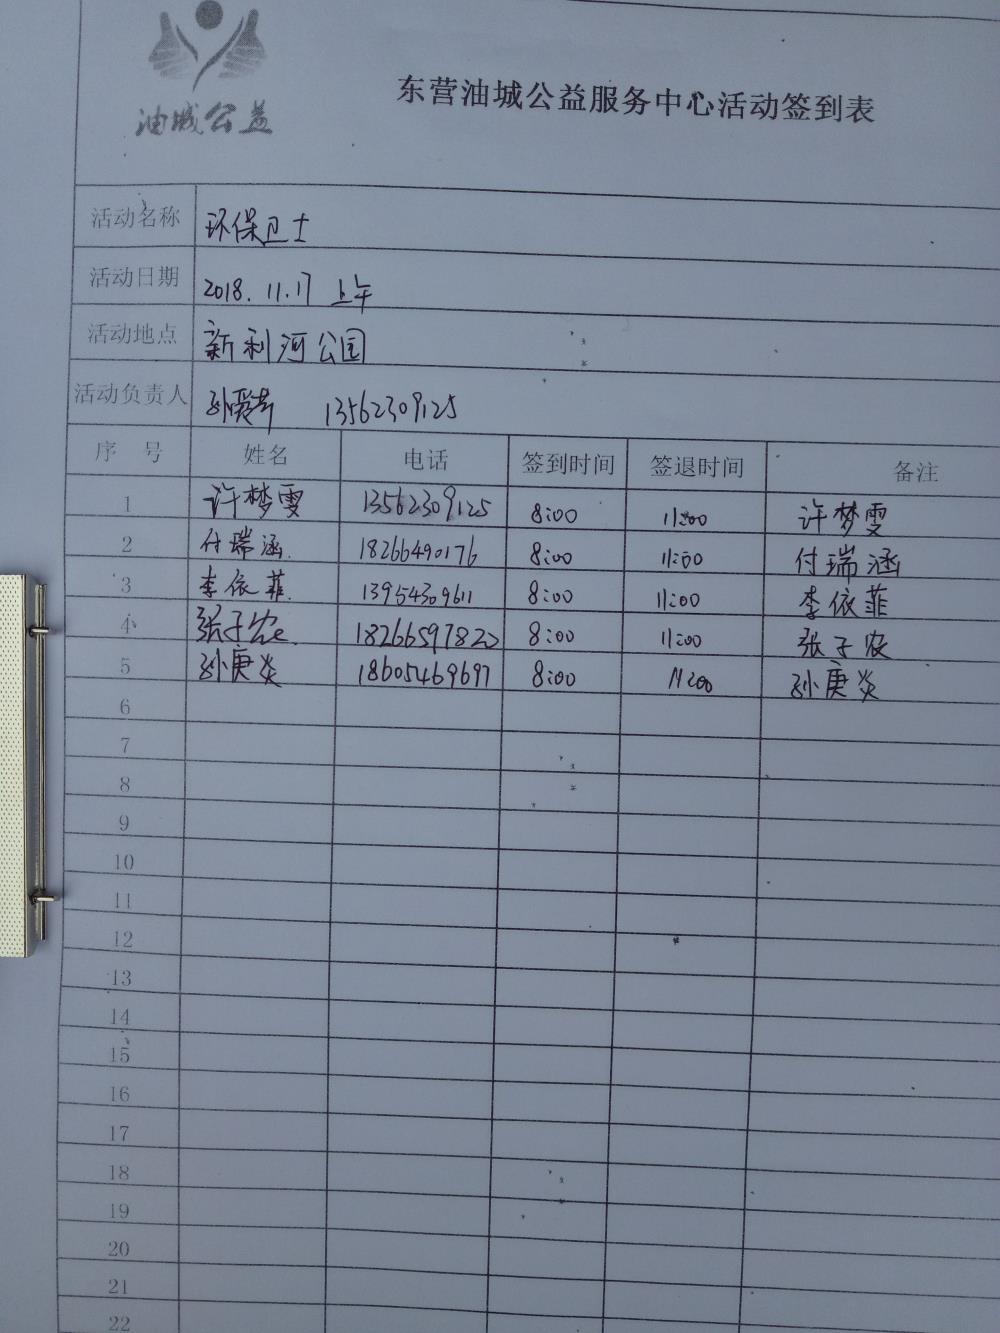 油城公益
东营油城公益服务中心活动签到表
活动名称 环保卫士
活动日期 2018.11.17 上午
活动地点 新利河公园
活动负责人 孙爱芹 13562309125
序号 姓名 电话 签到时间 签退时间 备注
1 许梦雯 13562309125 8:00 11:00 许梦雯
2 付瑞涵 18266490176 8:00 11:00 付瑞涵
3 李依菲 13954309611 8:00 11:00 李依菲
4 张子农 18266597822 8:00 11:00 张子农
5 孙庚炎 18605469697 8:00 11:00 孙庚炎
6
7
8
9
10
11
12
13
14
15
16
17
18
19
20
21
22